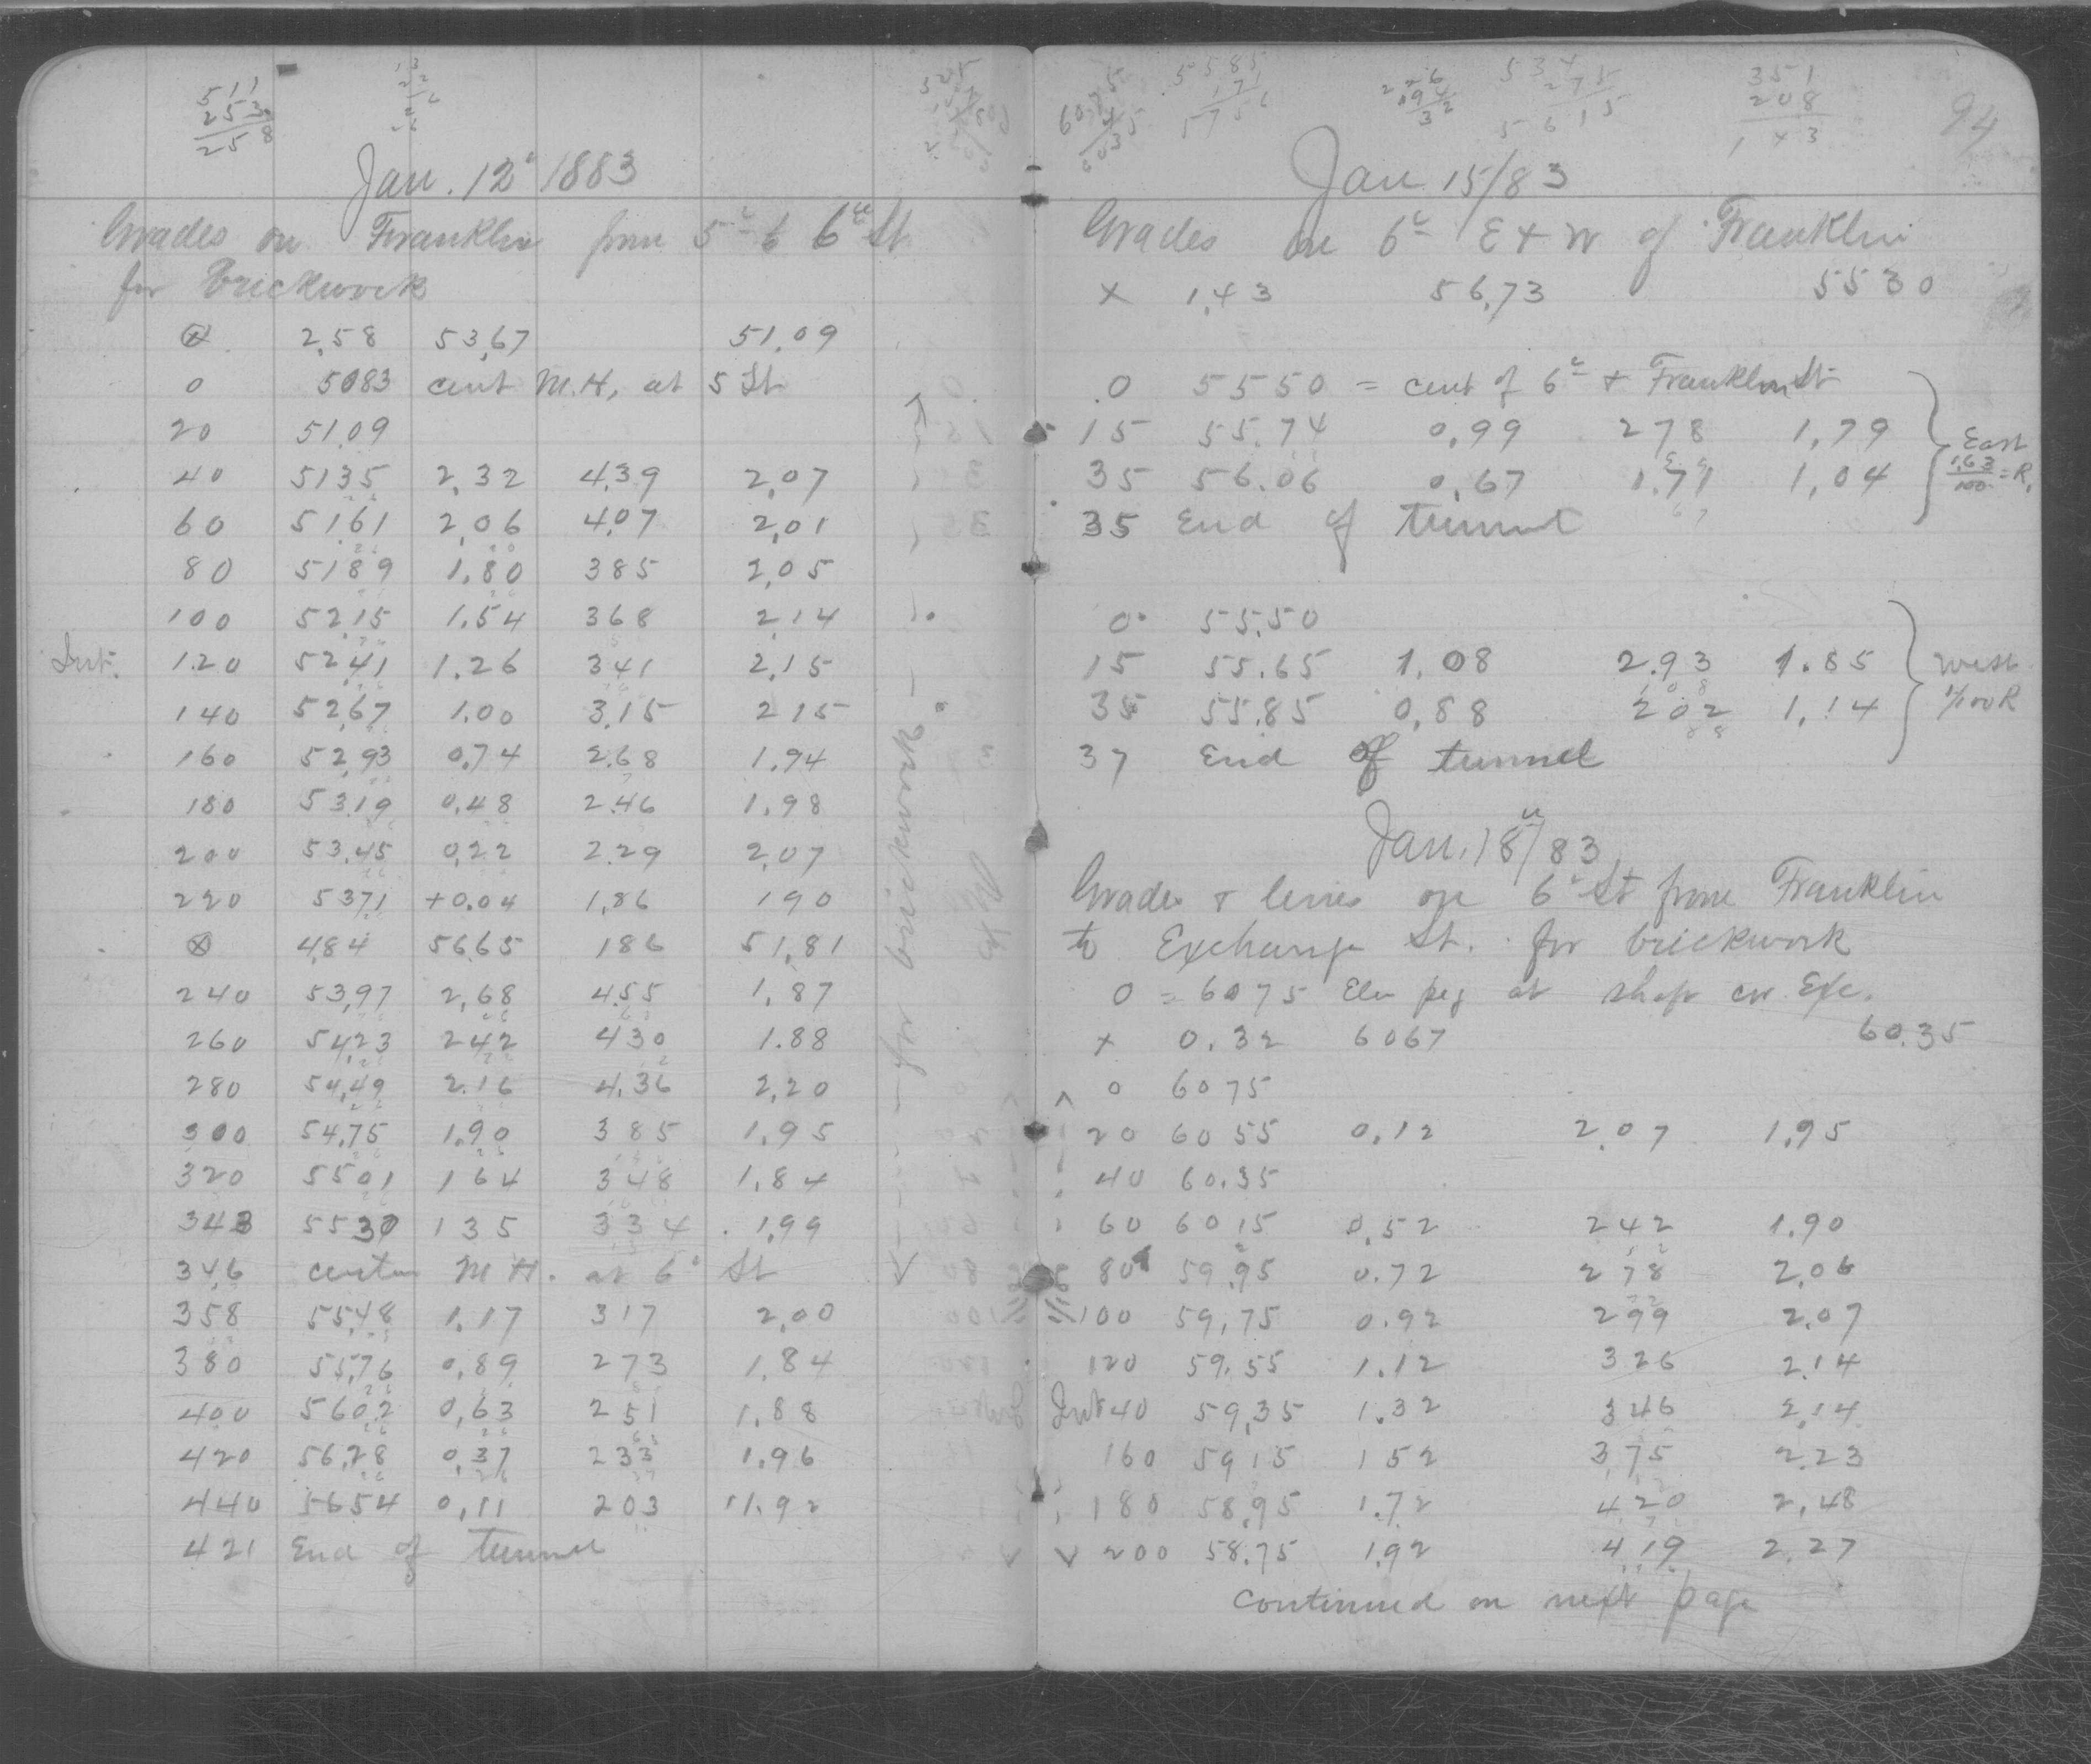 511
253
258
Jan. 12" 1883
Grades on Franklin from 5" to 6" St.
for Brickwork
⊗ 2,58 53,67 51.09
0 5083 cent M.H, at 5 St
20 51.09
40 5135 2,32 4,39 2,07
60 51,61 2,06 4,07 2,01
80 5189 1,80 385 2,05
100 52,15 1,54 368 2,14
Int. 120 5241 1.26 341 2,15
140 52,67 1.00 3,15 215
160 52,93 0,74 2.68 1.94
180 5319 0,48 2.46 1,98
200 53,45 0,22 2.29 2,07
220 5371 +0.04 1,86 190
⊗ 4,84 5665 186 51,81
240 53,97 2,68 4.55 1,87
260 54,23 242 430 1.88
280 54,49 2.16 4,36 2,20
300 54,75 1,90 385 1,95
320 5501 164 348 1,84
343 5530 135 334 1,99
346 center M H. at 6" St
358 55,48 1,17 317 2,00
380 55,76 0,89 273 1,84
400 5602 0,63 251 1,88
420 56,28 0,37 233 1.96
440 5654 0,11 203 1.92
421 End of tunnel
for brickwork
5585
171
5756
5345
275
5615
351
208
143
94
Jan 15/83
Grades on 6" E & W of Franklin
x 1,43 56,73 5530
0 5550 = cent of 6" & Franklin St
15 55.74 0,99 278 1,79
35 56.06 0,67 1.71 1,04
East
1,63/100 = R.
35 End of tunnel
0 55.50
15 55.65 1,08 2.93 1.85
35 55.85 0,88 202 1,14
West
1/100 R
37 End of tunnel
Jan. 18"/83
Grades & lines on 6" St from Franklin
to Exchange St. for brickwork
0 = 6075 Elev peg at shaft on Exc.
x 0.32 6067 60.35
0 6075
20 6055 0,12 2.07 1,95
40 60.35
60 6015 0,52 242 1.90
80 59.95 0.72 278 2,06
100 59,75 0.92 299 2,07
120 59.55 1.12 326 2.14
Int 40 59,35 1.32 346 2,14
160 5915 152 3,75 2.23
180 58,95 1.72 420 2,48
200 58.75 1,92 4,19 2.27
continued on next page